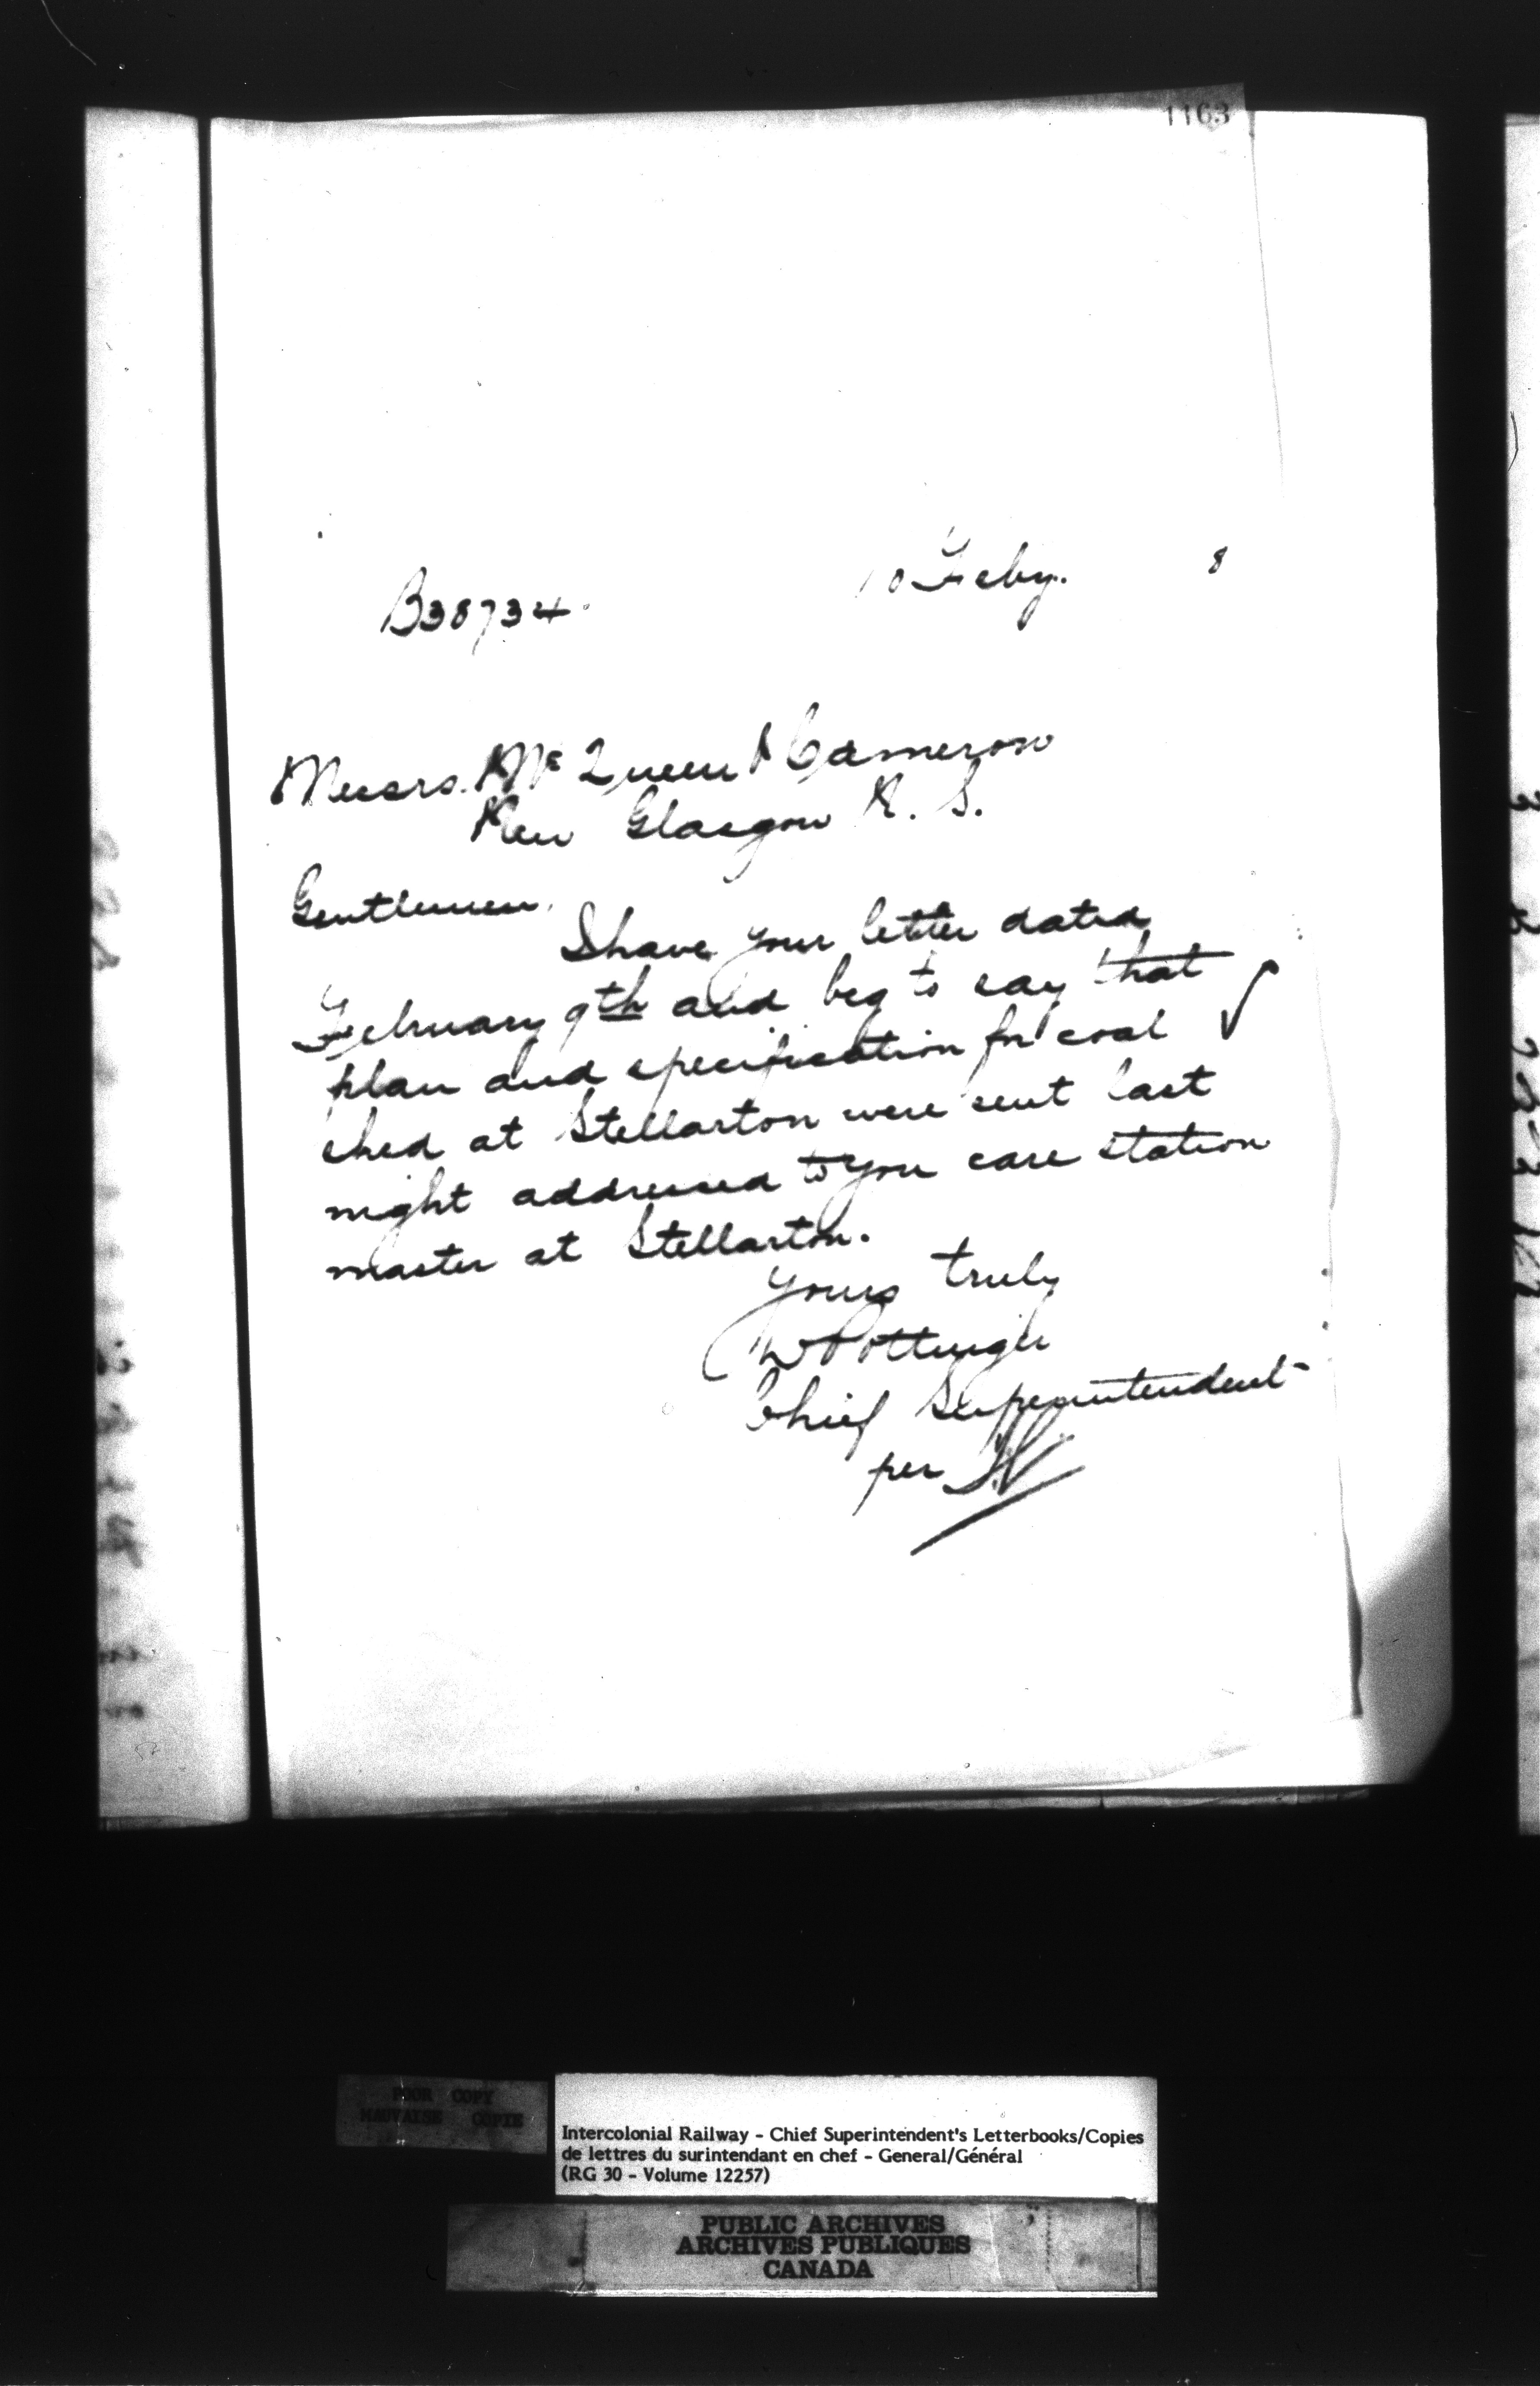 1163
10 Feby. 8
B38734
Messrs. McQueen & Cameron
New Glasgow N. S.
Gentlemen,
I have your letter dated
February 9th and beg to say that
plan and specification for coal
shed at Stellarton were sent last
night addressed to you care station
master at Stellarton.
Yours truly
D Pottinger
Chief Superintendent
per
POOR COPY
MAUVAISE COPIE
Intercolonial Railway - Chief Superintendent's Letterbooks/Copies
de lettres du surintendant en chef - General/Général
(RG 30 - Volume 12257)
PUBLIC ARCHIVES
ARCHIVES PUBLIQUES
CANADA